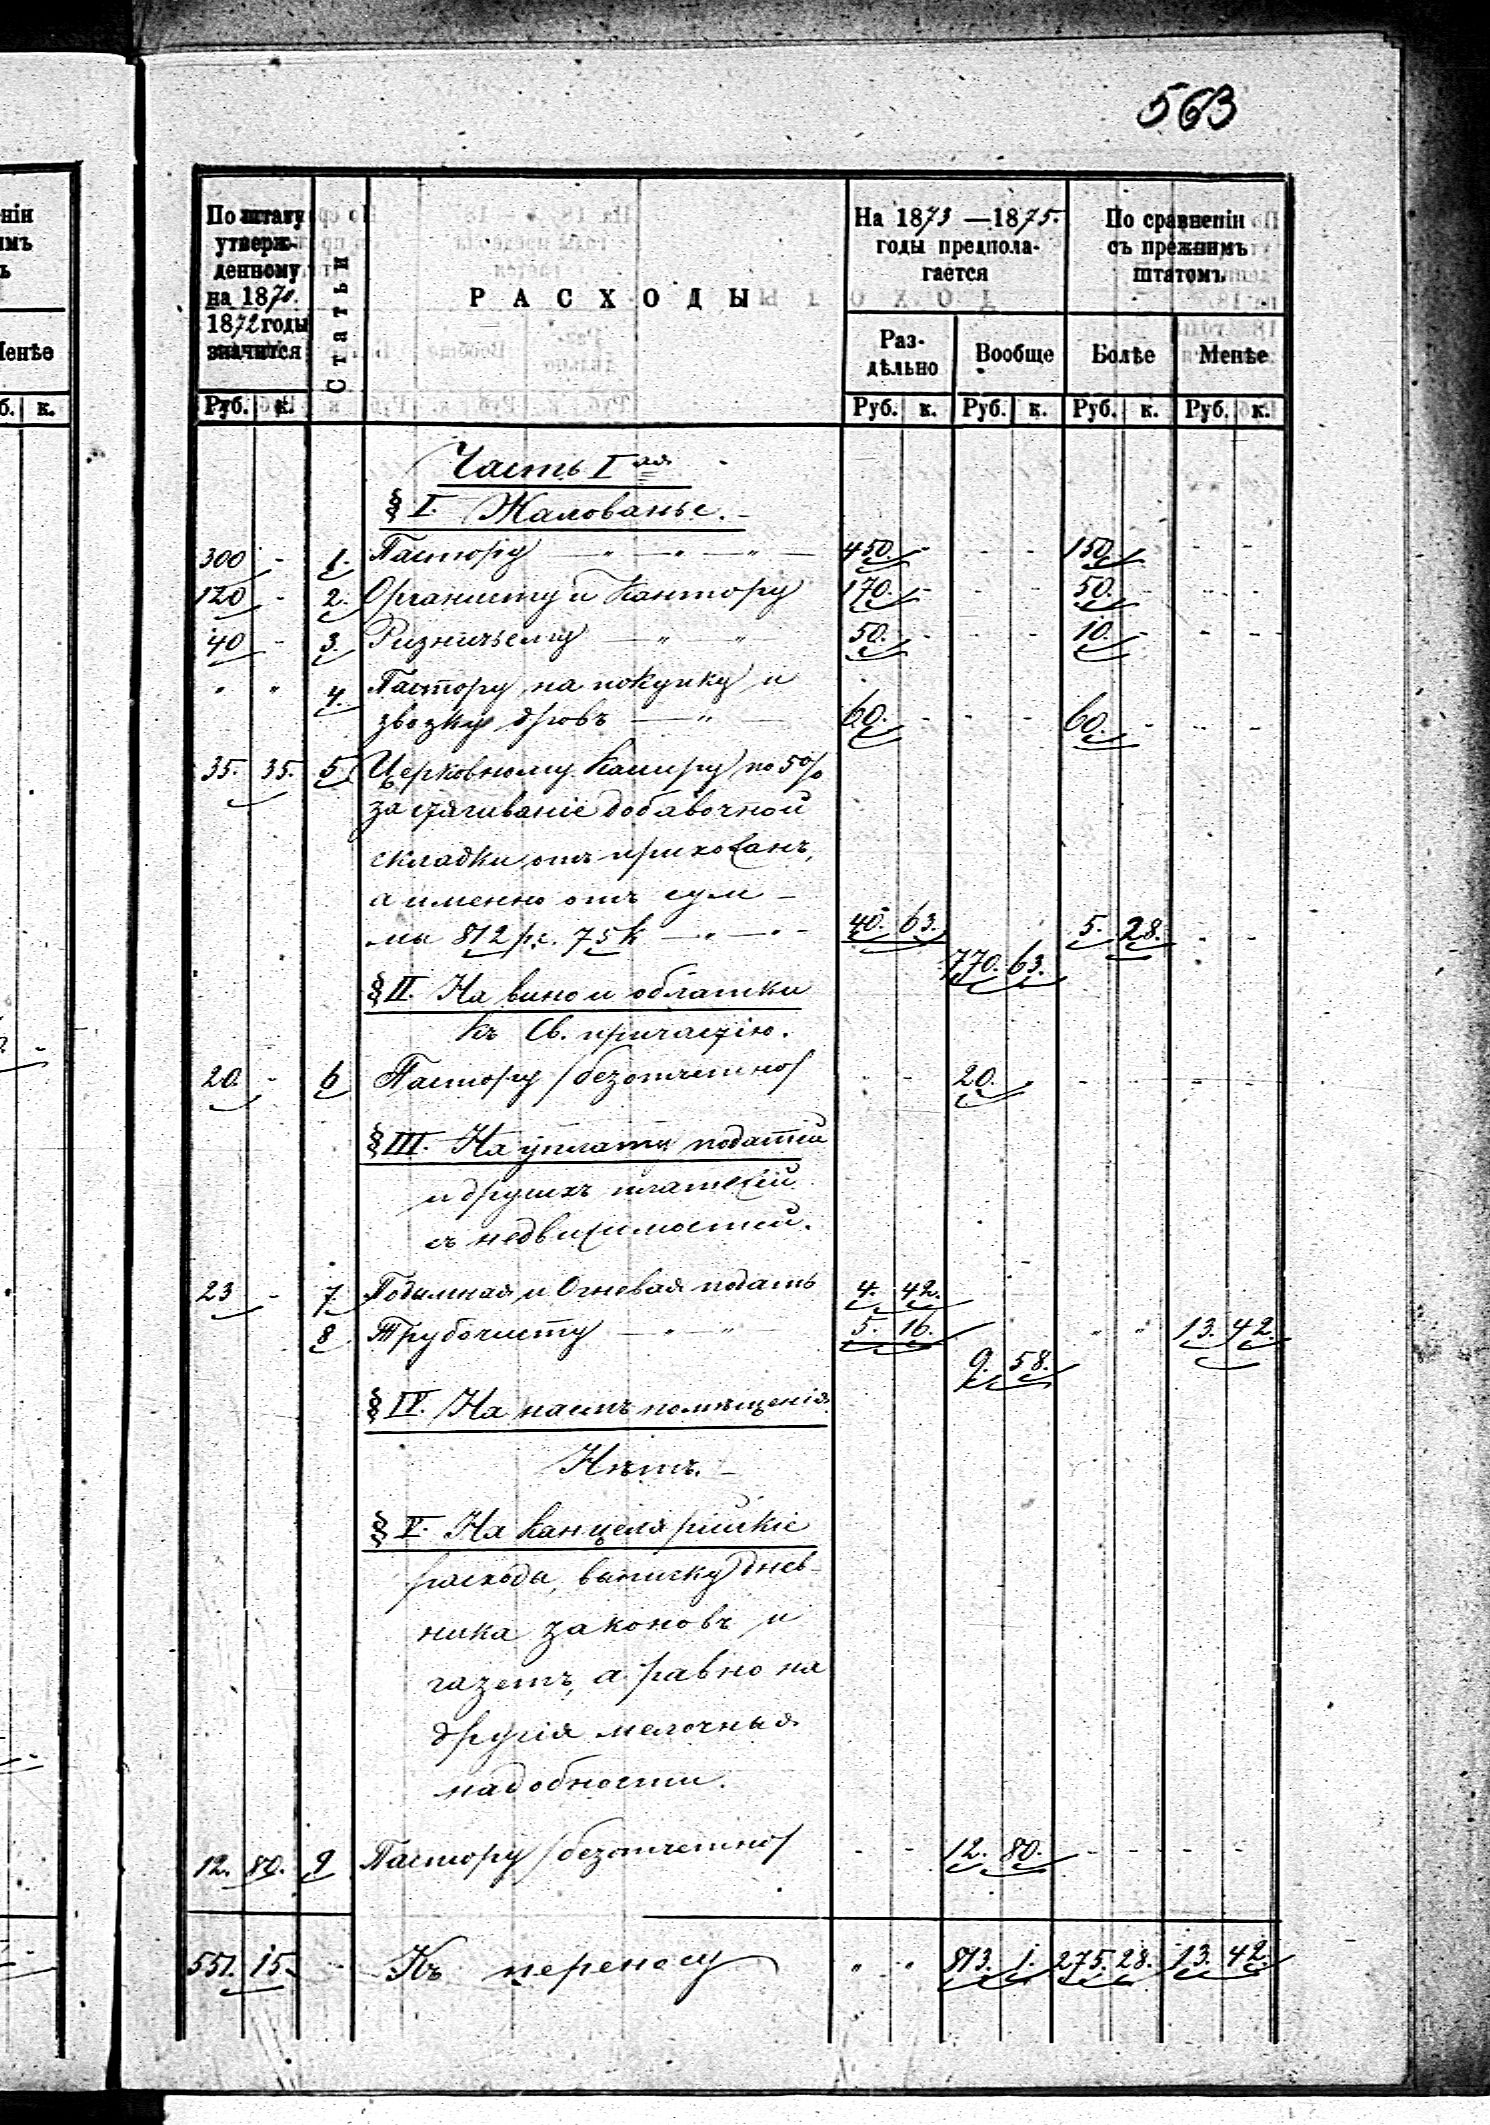 563
По штату утверж-
денному
на 1870.
1872 годы
значится
Руб. к.
Статьи
РАСХОДЫ
На 1873 — 1875.
годы предпола-
гается
Раз-
дѣльно
Вообще
Руб. к. Руб. к.
По сравненіи
съ прежнимъ
штатомъ
Болѣе Менѣе
Руб. к. Руб. к.
Часть I ая
§ I. Жалованье.
300 - 1. Пастору — " — " — " — 450. - - - 150. - - -
120 - 2. Органисту и Кантору 170. - - - 50. - - -
40 - 3. Ризничьему — " — " 50. - - - 10. - - -
" " 4. Пастору на покупку и
звозку дровъ — " — 60. - - - 60. - - -
35. 35. 5. Церковному Кассиру по 5%
за стягиваніе добавочной
складки отъ прихожанъ,
а именно отъ сум-
мы 812 р. 75 к — " — " - 40. 63. 5. 28. - -
770. 63.
§ II. На вино и облатки
къ Св. причастію.
20. - 6 Пастору /безотчетно/ - - 20. - - - - -
§ III. На уплату податей
и другихъ платежей
съ недвижимостей.
23 - 7 Подымная и Огневая подать 4. 42.
8 Трубочисту — " — " 5. 16. " " 13. 42.
9. 58.
§ IV. На наемъ помѣщенія
Нѣтъ. -
§ V. На канцелярійскіе
расходы, выписку Днев-
ника законовъ и
газетъ, а равно на
другія мелочныя
надобности.
12. 80. 9 Пастору /безотчетно/ - - 12. 80. - - - -
551. 15. - Къ переносу " " 813. 1. 275. 28. 13. 42.